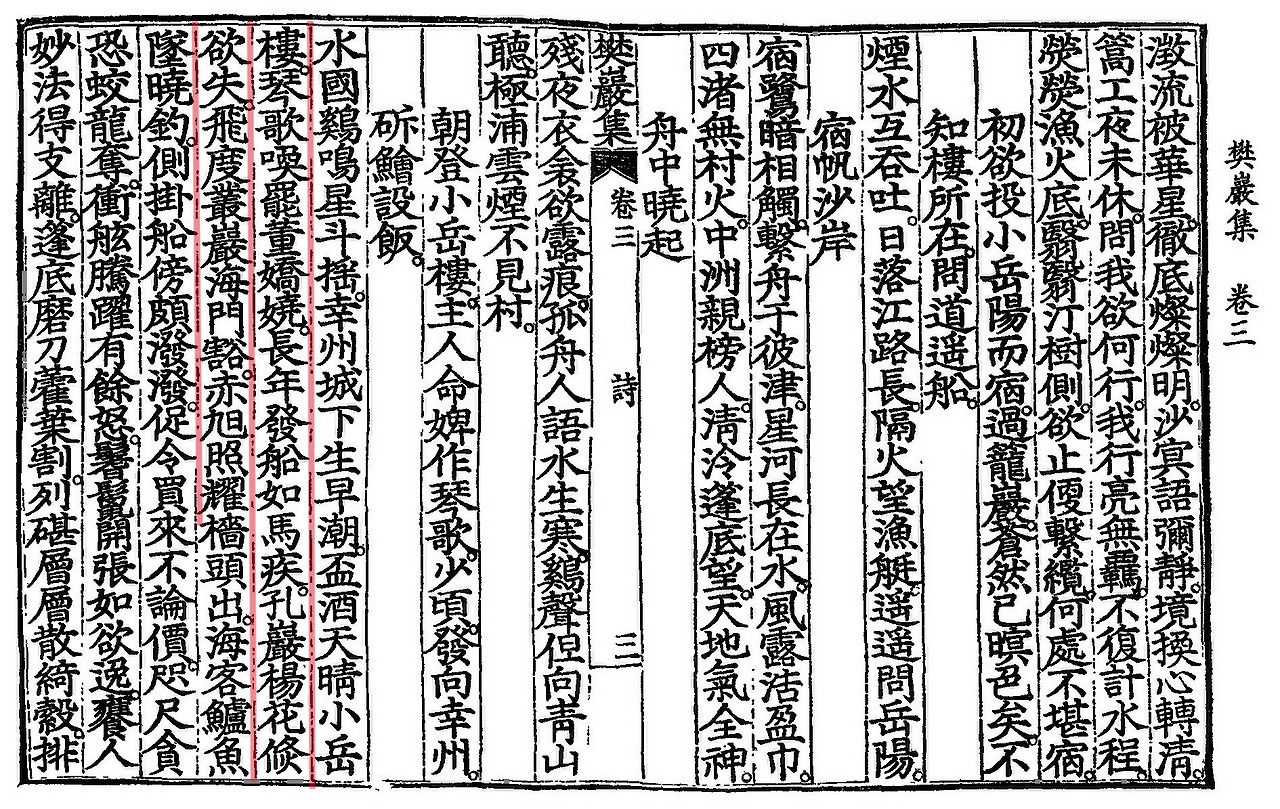 樊巖集 卷三
澂流被華星。徹底燦燦明。沙㝠語彌靜。境換心轉淸。
篙工夜未休。問我欲何行。我行亮無羈。不復計水程。
熒熒漁火底。翳翳汀樹側。欲止便繫纜。何處不堪宿。
初欲投小岳陽而宿。過籠巖。蒼然已暝色矣。不
知樓所在。問道遥船。
煙水互吞吐。日落江路長。隔火望漁艇。遥遥問岳陽。
宿帆沙岸
宿鷺暗相觸。繫舟于彼津。星河長在水。風露浩盈巾。
四渚無村火。中洲親榜人。淸泠蓬底望。天地氣全神。
舟中曉起
樊巖集 卷三 詩 三
殘夜衣衾欲露痕。孤舟人語水生寒。鷄聲但向靑山
聽。極浦雲煙不見村。
朝登小岳樓。主人命婢作琴歌。少頃。發向幸州。
斫鱠設飯。
水國鷄鳴星斗搖。幸州城下生早潮。盃酒天晴小岳
樓。琴歌喚罷董嬌嬈。長年發船如馬疾。孔巖楊花倐
欲失。飛度叢巖海門豁。赤旭照耀檣頭出。海客鱸魚
墜曉釣。側掛船傍頗潑潑。促令買來不論價。咫尺貪
恐蛟龍奪。衝舷騰躍有餘怒。鬐鬣開張如欲逸。饔人
妙法得支離。蓬底磨刀藿葉割。列碪層層散綺縠。排